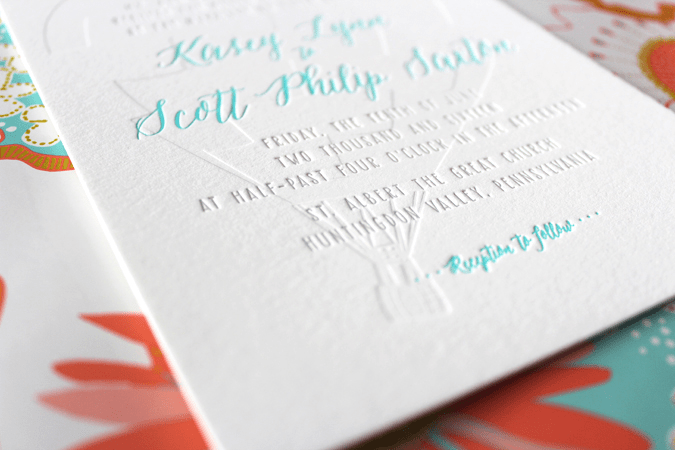 Kasey Lynn
&
Scott Philip Saxton
FRIDAY, THE TENTH OF JUNE
TWO THOUSAND AND SIXTEEN
AT HALF-PAST FOUR O'CLOCK IN THE AFTERNOON
ST. ALBERT THE GREAT CHURCH
HUNTINGDON VALLEY, PENNSYLVANIA
... Reception to follow ...